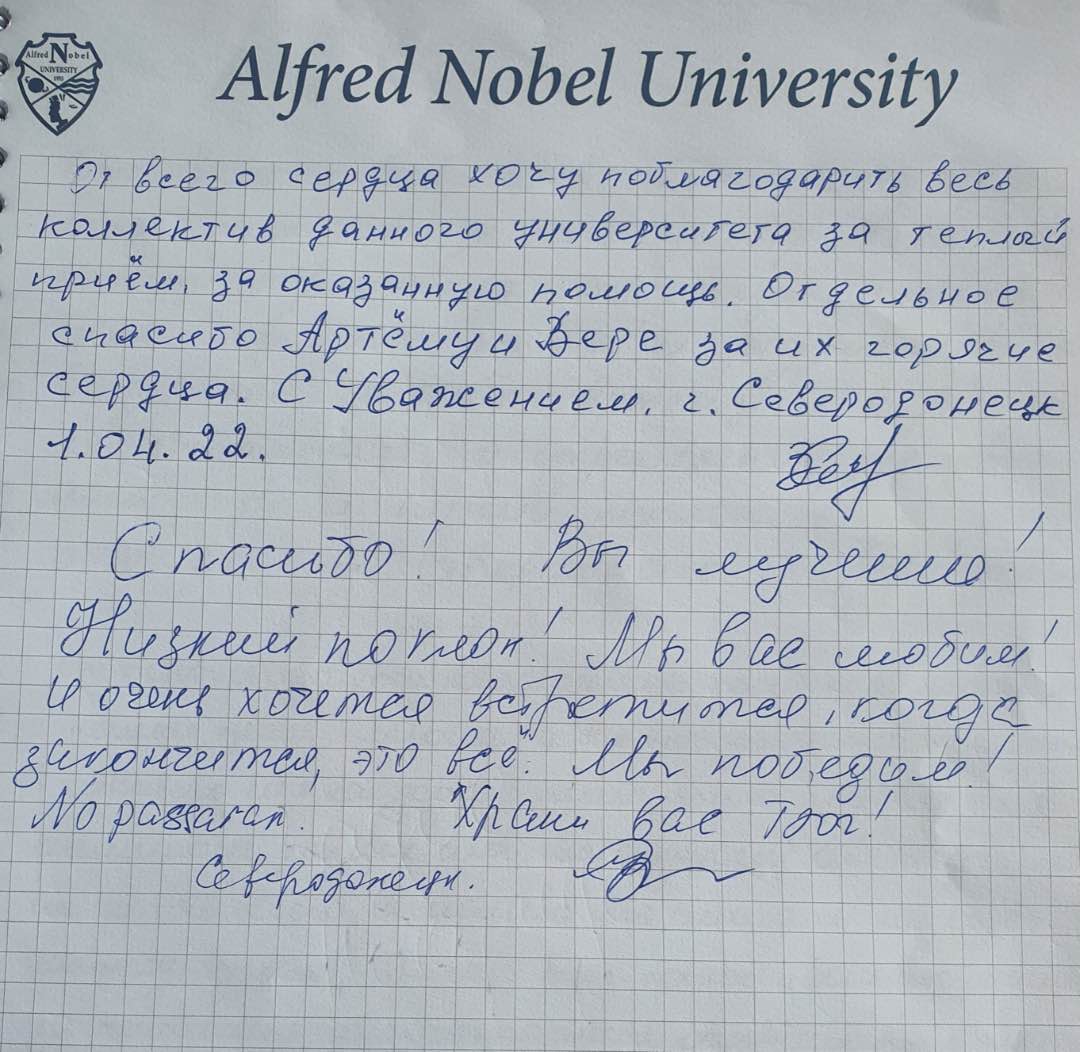 Alfred Nobel
UNIVERSITY
1993
Alfred Nobel University
От всего сердца хочу поблагодарить весь
коллектив данного университета за теплый
приём, за оказанную помощь. Отдельное
спасибо Артёму и Вере за их горячие
сердца. С Уважением. г. Северодонецк
1.04.22.
Спасибо! Вы лучшие!
Низкий поклон! Мы вас любим!
И очень хочется встретится, когда
закончится, это всё. Мы победим!
No passaran. Храни вас Бог!
Северодонецк.